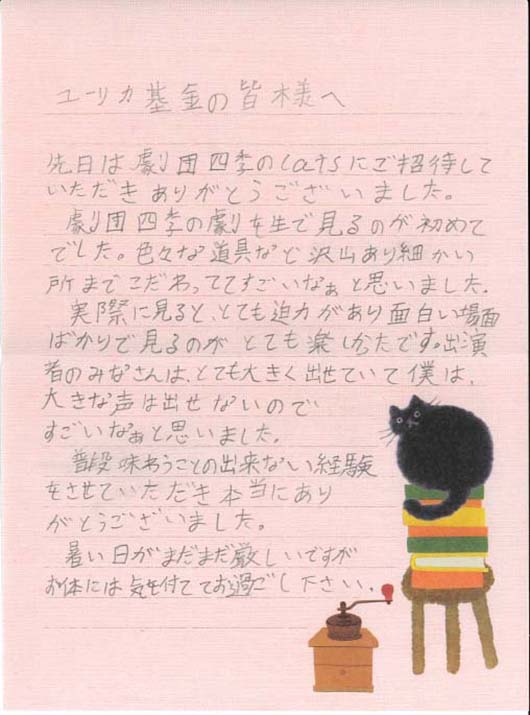 ユーリカ基金の皆様へ
先日は劇団四季のcatsにご招待して
いただきありがとうございました。
劇団四季の劇を生で見るのが初めて
でした。色々な道具など沢山あり細かい
所までこだわっててすごいなぁと思いました.
実際に見ると、とても迫力があり面白い場面
ばかりで見るのがとても楽しかたです。出演
者のみなさんは、とても大きく出せていて僕は、
大きな声は出せないので
すごいなぁと思いました。
普段味わうことの出来ない経験
をさせていただき本当にあり
がとうございました。
暑い日がまだまだ厳しいですが
お体には気を付けてお過ごし下さい。